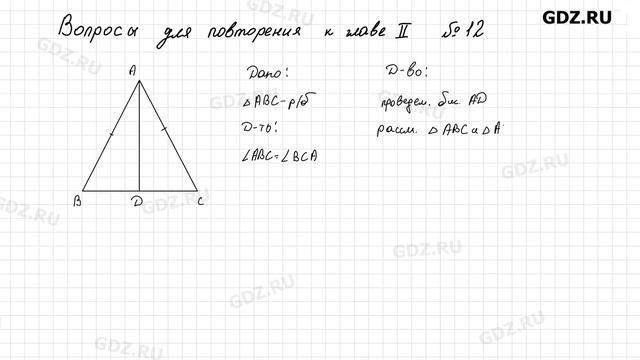 GDZ.RU
Вопросы для повторения к главе II № 12
Дано:
△ABC - р/б
Д-ть:
∠ABC = ∠BCA
Д-во:
проведем. бис AD
рассм. △ABC и △A
A
B
D
C
GDZ.RU
GDZ.RU
GDZ.RU
GDZ.RU
GDZ.RU
GDZ.RU
GDZ.RU
GDZ.RU
GDZ.RU
GDZ.RU
GDZ.RU